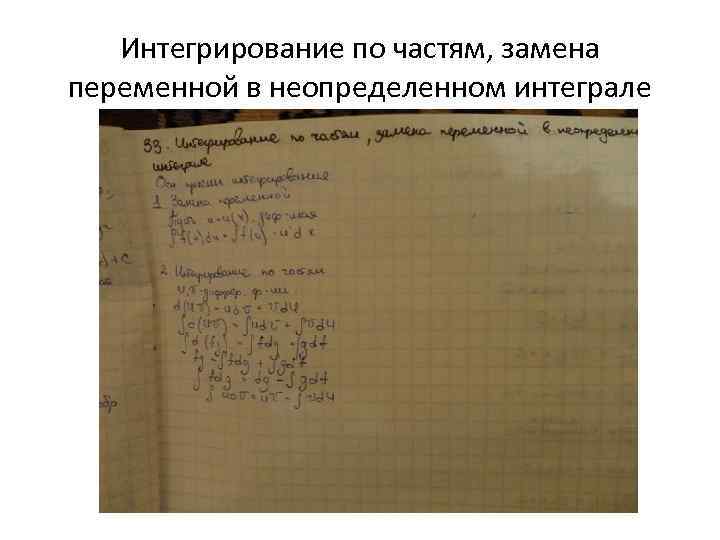 Интегрирование по частям, замена
переменной в неопределенном интеграле
33. Интегрирование по частям, замена переменной в неопределен
интеграле
интегрирования
1. Замена переменной
u=u(x)
∫f(u)du=∫f(u)·u'dx
2. Интегрирование по частям
u,v-диффер. ф-ии
d(uv)=udv=vdu
∫d(uv)=∫udv=∫vdu
∫d(fg)=∫fdg=∫gdf
fg=∫fdg+∫gdf
∫fdg=dg-∫gdf
∫udv=uv-∫vdu
+C
обр